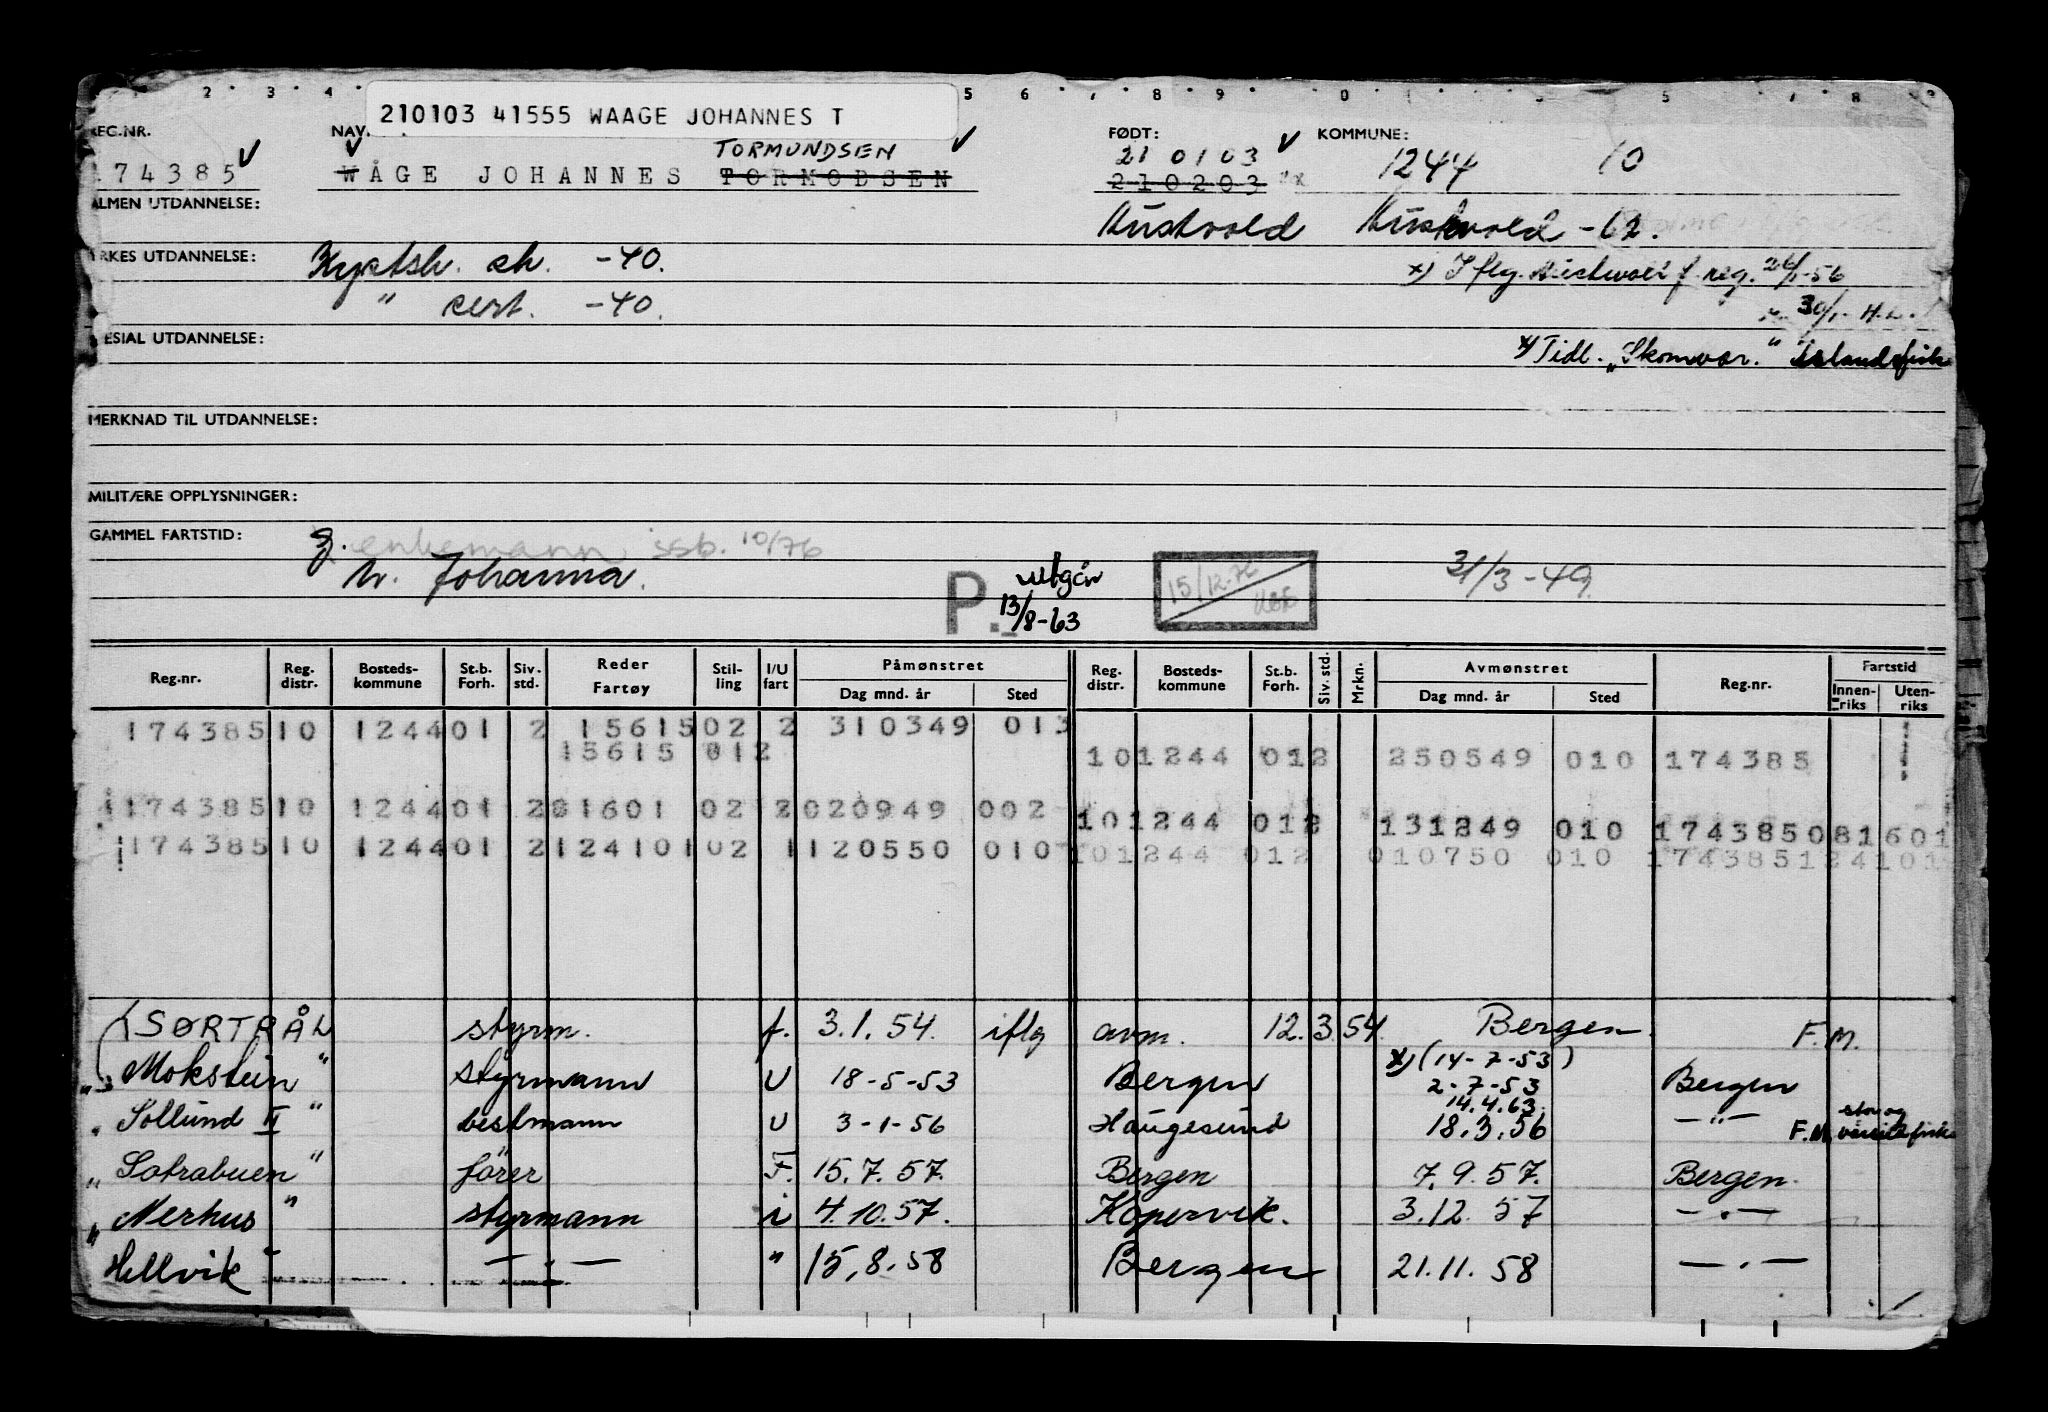 210103 41555 WAAGE JOHANNES T
NAV.
FØDT:
KOMMUNE:
TORMUNDSEN
21 01 03
1244 10
174385
WÅGE JOHANNES TORMODSEN
210203
ALMEN UTDANNELSE:
Austvold Austvold -62.
YRKES UTDANNELSE:
Kystsk. ek. -40.
x) I flg. Austvoll f. reg. 26/1-56
" cert. -40.
30/1- H.L.
SPESIAL UTDANNELSE:
x) Tidl. "Skomvær." Islandsfisk
MERKNAD TIL UTDANNELSE:
MILITÆRE OPPLYSNINGER:
GAMMEL FARTSTID:
g. enkemann ssb. 10/76
m. Johanna.
P. utgår 13/8-63
15/12-76
31/3-49
Reg.nr. Reg. distr. Bosteds- kommune St.b. Forh. Siv. std. Reder Fartøy Stil- ling I/U fart Påmønstret Dag mnd. år Sted Reg. distr. Bosteds- kommune St.b. Forh. Siv. std. Mrkn. Avmønstret Dag mnd. år Sted Reg.nr. Fartstid Innen- riks Uten- riks
174385 10 1244 01 2 15615 02 2 310349 013
15615 012 10 1244 012 250549 010 174385
174385 10 1244 01 2 81601 02 2 020949 002 10 1244 012 131249 010 174385 081601
174385 10 1244 01 2 124101 02 1 120550 010 10 1244 012 010750 010 174385 124101
SØRTRÅL styrm. f. 3.1.54. iflg avm. 12.3.54. Bergen. F.M.
x) (14-7-53)
" Mokstein " styrmann U 18-5-53 Bergen 2-7-53 Bergen
14.4.63.
" Sollund II " bestmann U 3-1-56 Haugesund 18.3.56 —"— F.M. stor og vårsildfiske
" Sotrabuen " fører F. 15.7.57. Bergen 7.9.57. Bergen.
" Nerhus " styrmann i 4.10.57. Kopervik. 3.12.57 —"—
Hellvik —"— " 15.8.58 Bergen 21.11.58 —"—